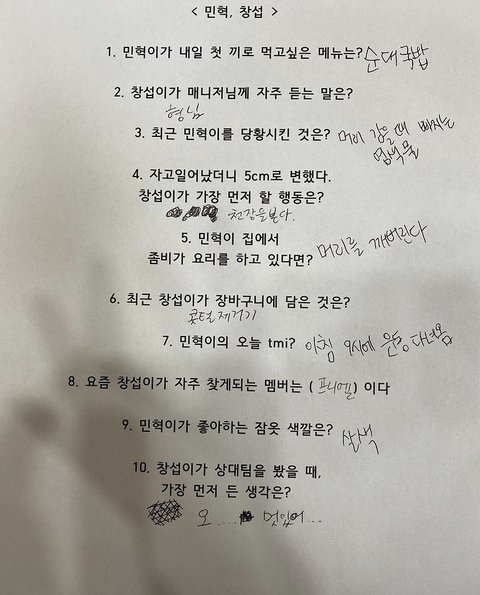 < 민혁, 창섭 >
1. 민혁이가 내일 첫 끼로 먹고싶은 메뉴는? 순대국밥
2. 창섭이가 매니저님께 자주 듣는 말은?
형님
3. 최근 민혁이를 당황시킨 것은? 머리 감을 때 빠지는
염색물
4. 자고일어났더니 5cm로 변했다.
창섭이가 가장 먼저 할 행동은?
천장을본다.
5. 민혁이 집에서
좀비가 요리를 하고 있다면? 머리를 깨버린다
6. 최근 창섭이가 장바구니에 담은 것은?
콧털제거기
7. 민혁이의 오늘 tmi? 아침 9시에 운동 다녀옴
8. 요즘 창섭이가 자주 찾게되는 멤버는 ( 프니엘 ) 이다
9. 민혁이가 좋아하는 잠옷 색깔은? 살색
10. 창섭이가 상대팀을 봤을 때,
가장 먼저 든 생각은?
오.... 멋있어...